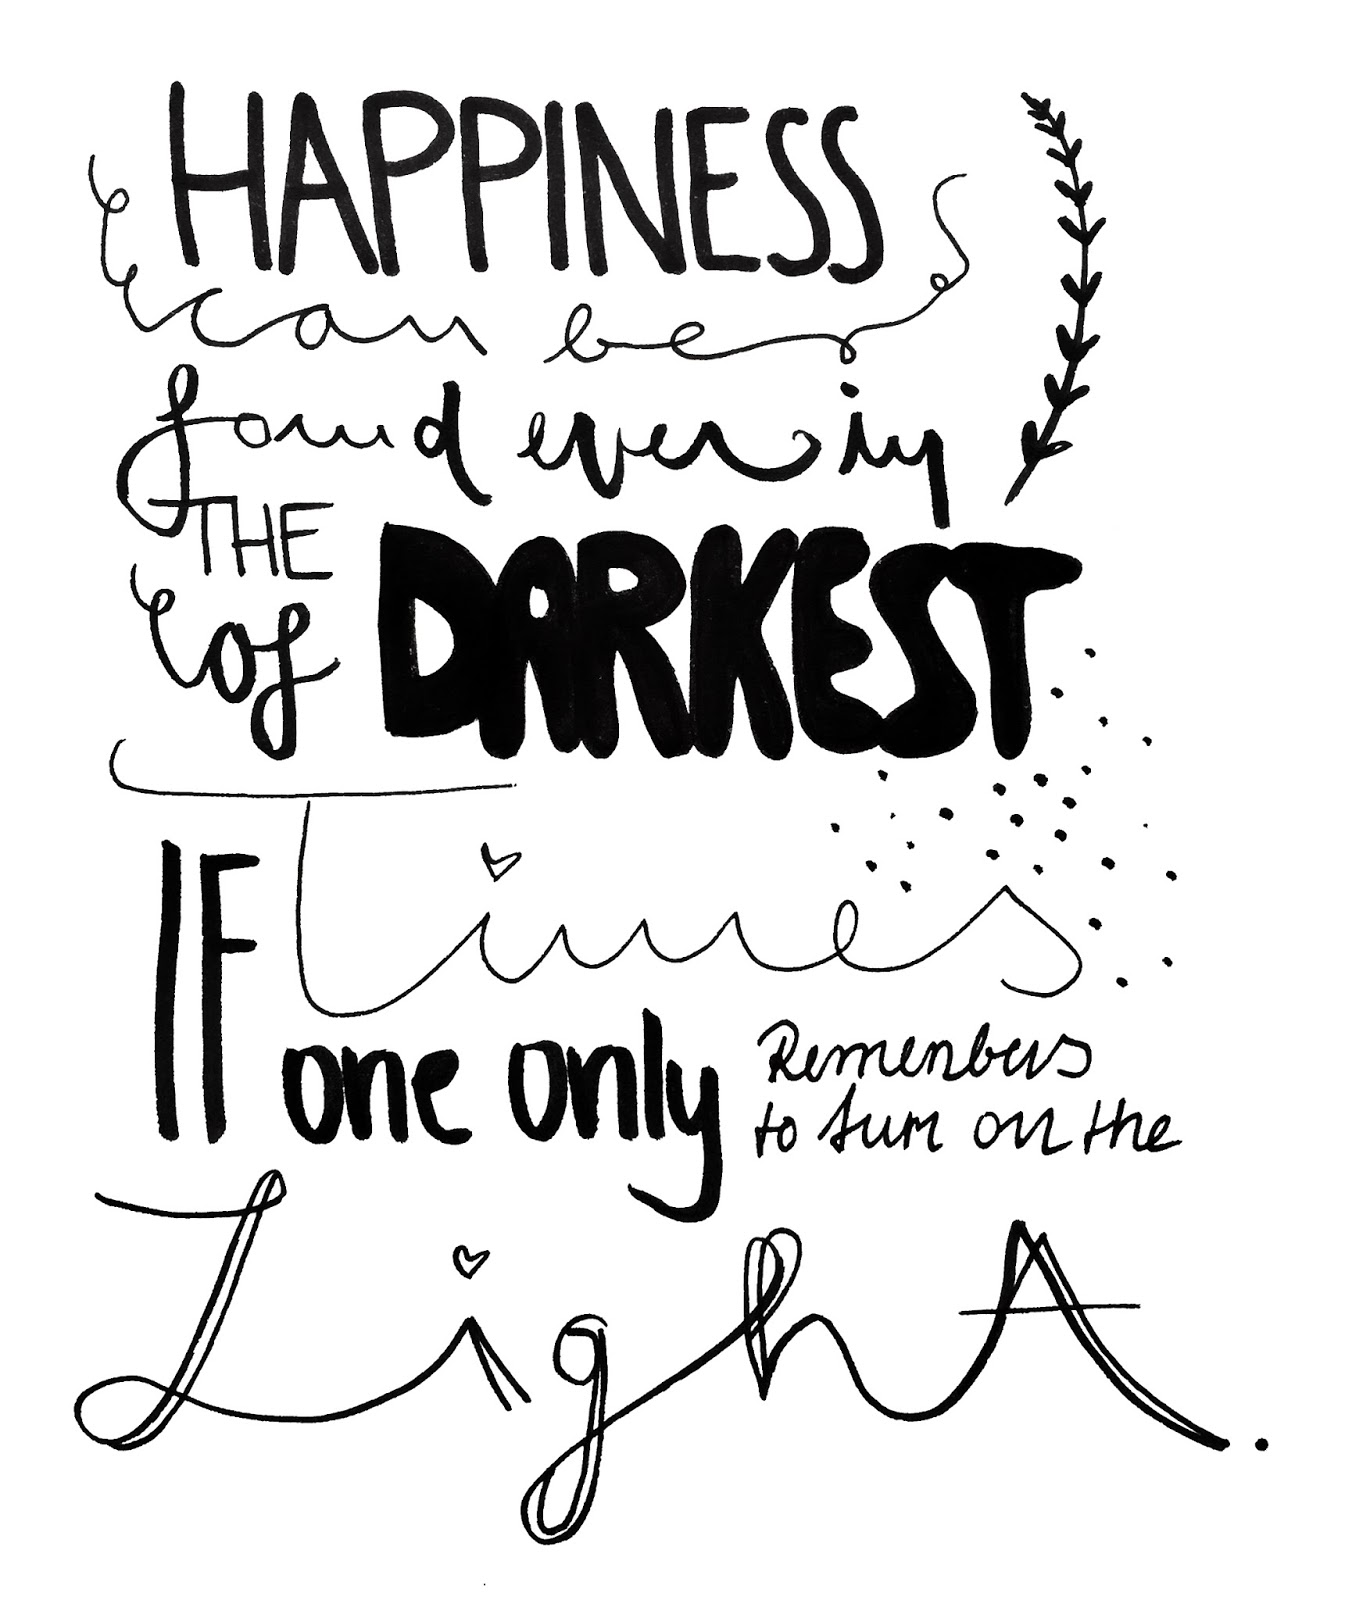 HAPPINESS
can be
found even in
THE DARKEST
of
Times
IF one only Remembers
to turn on the
Light.